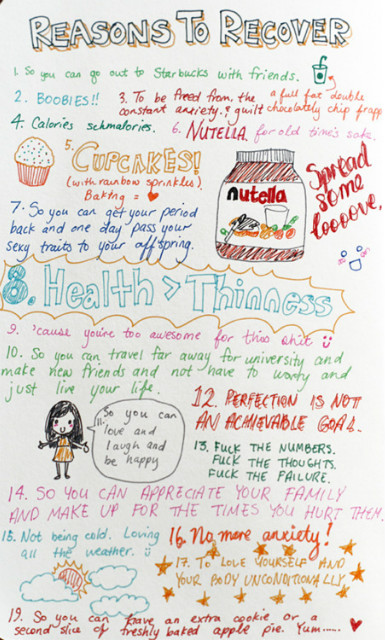 REASONS TO RECOVER
1. So you can go out to Starbucks with friends.
2. BOOBIES!!
3. To be freed from the constant anxiety & guilt
a full fat double chocolatey chip frapp
4. Calories schmalories.
5. CUPCAKES!
(with rainbow sprinkles)
Baking = ♥
6. NUTELLA for old time's sake.
nutella
Spread
some
loooove.
7. So you can get your period
back and one day pass your
sexy traits to your offspring.
8. Health > Thinness
9. 'cause you're too awesome for this shit
10. So you can travel far away for university and
make new friends and not have to worry and
just live your life.
11. So you can
love and
laugh and
be happy
12. PERFECTION IS NOT
AN ACHIEVABLE GOAL.
13. FUCK THE NUMBERS.
FUCK THE THOUGHTS.
FUCK THE FAILURE.
14. SO YOU CAN APPRECIATE YOUR FAMILY
AND MAKE UP FOR THE TIMES YOU HURT THEM.
15. Not being cold. Loving
all the weather. :)
16. No more anxiety!
17. TO LOVE YOURSELF AND
YOUR BODY UNCONDITIONALLY
19. So you can have an extra cookie or a
second slice of freshly baked apple pie. Yum.....